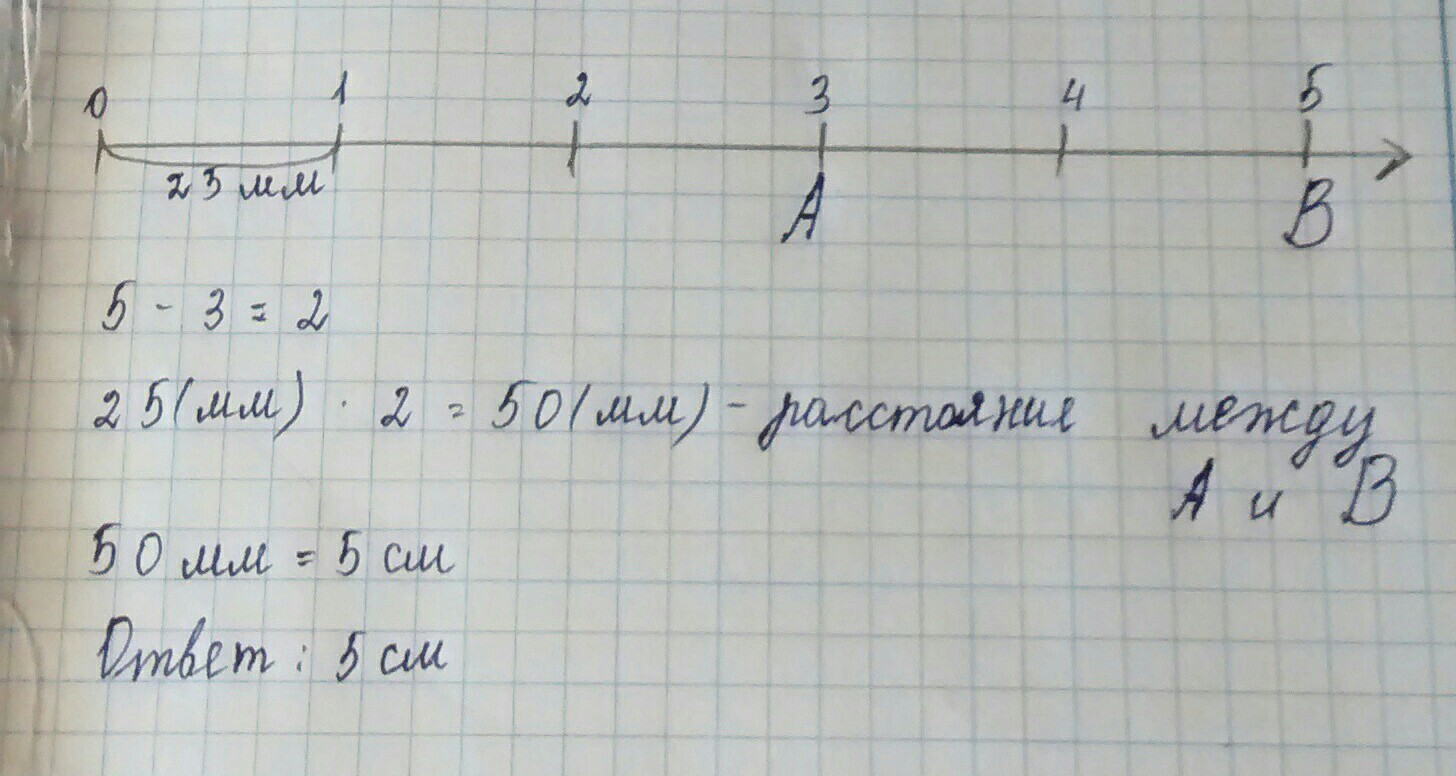 0 1 2 3 4 5
25 мм
А В
5 - 3 = 2
25(мм) · 2 = 50(мм) - расстояние между
А и В
50 мм = 5 см
Ответ: 5 см